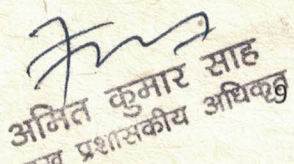 अनित कुमार साह
प्रशासकीय अधिकृत